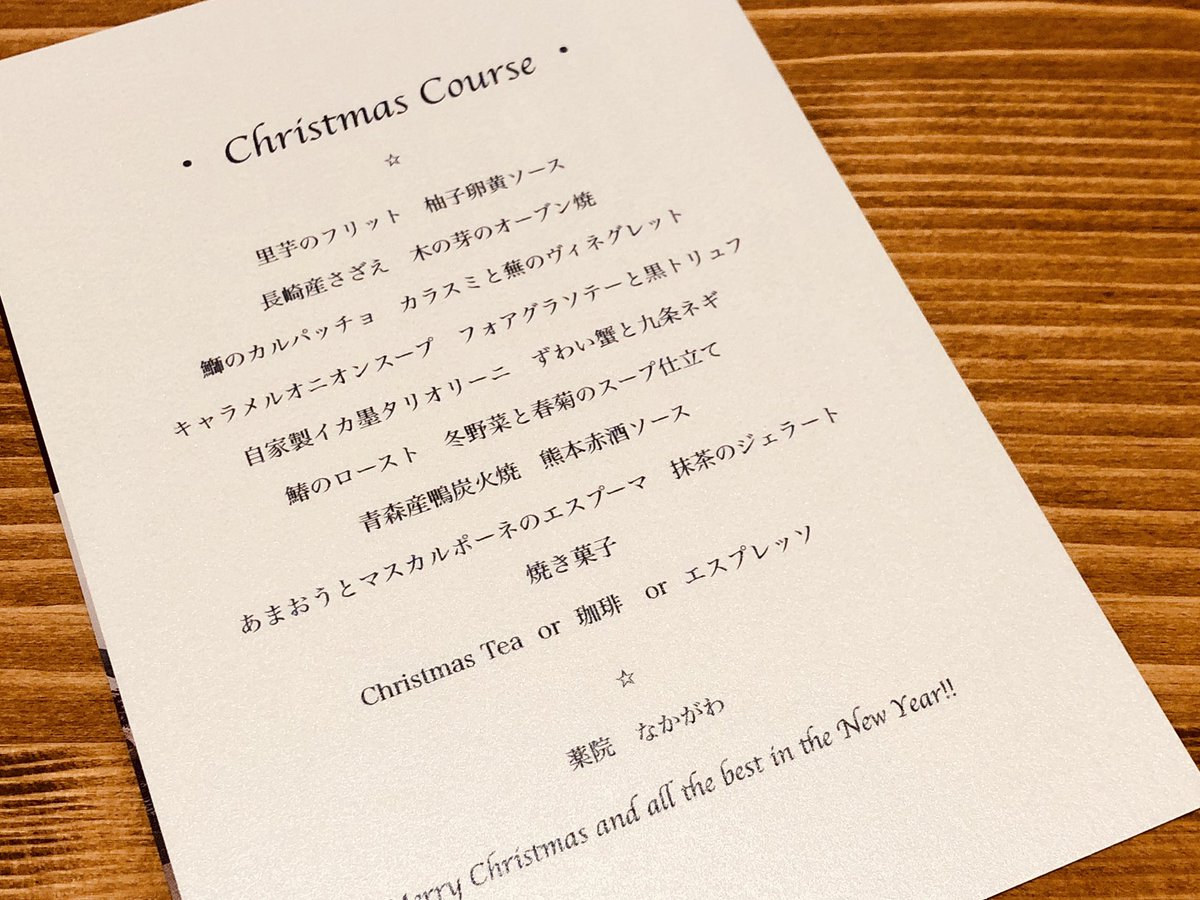 ・ Christmas Course ・
☆
里芋のフリット　柚子卵黄ソース
長崎産さざえ　木の芽のオーブン焼
鰤のカルパッチョ　カラスミと蕪のヴィネグレット
キャラメルオニオンスープ　フォアグラソテーと黒トリュフ
自家製イカ墨タリオリーニ　ずわい蟹と九条ネギ
鰆のロースト　冬野菜と春菊のスープ仕立て
青森産鴨炭火焼　熊本赤酒ソース
あまおうとマスカルポーネのエスプーマ　抹茶のジェラート
焼き菓子
Christmas Tea or 珈琲 or エスプレッソ
☆
薬院　なかがわ
Merry Christmas and all the best in the New Year!!